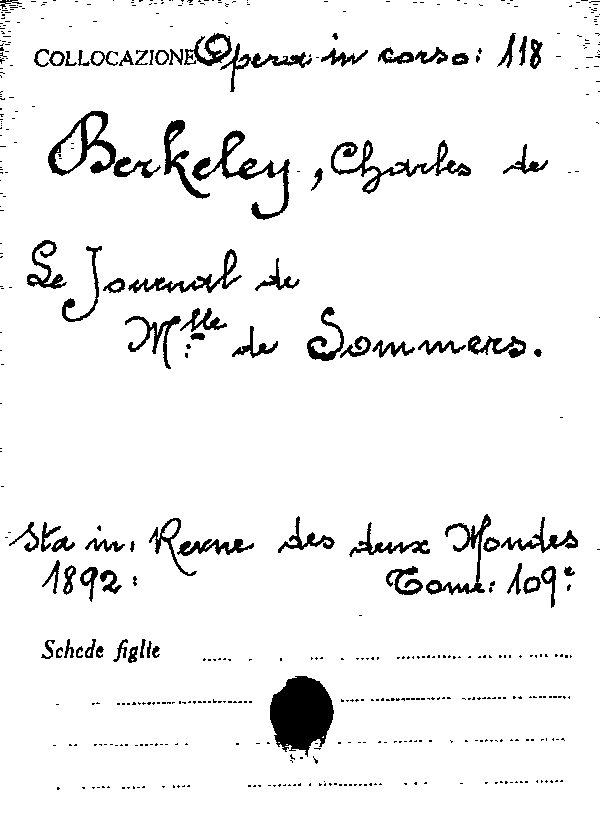 COLLOCAZIONE Opera in corso: 118
Berkeley, Charles de
Le Journal de
M.lle de Sommers.
Sta in: Revue des deux Mondes
1892: Tome: 109.e
Schede figlie